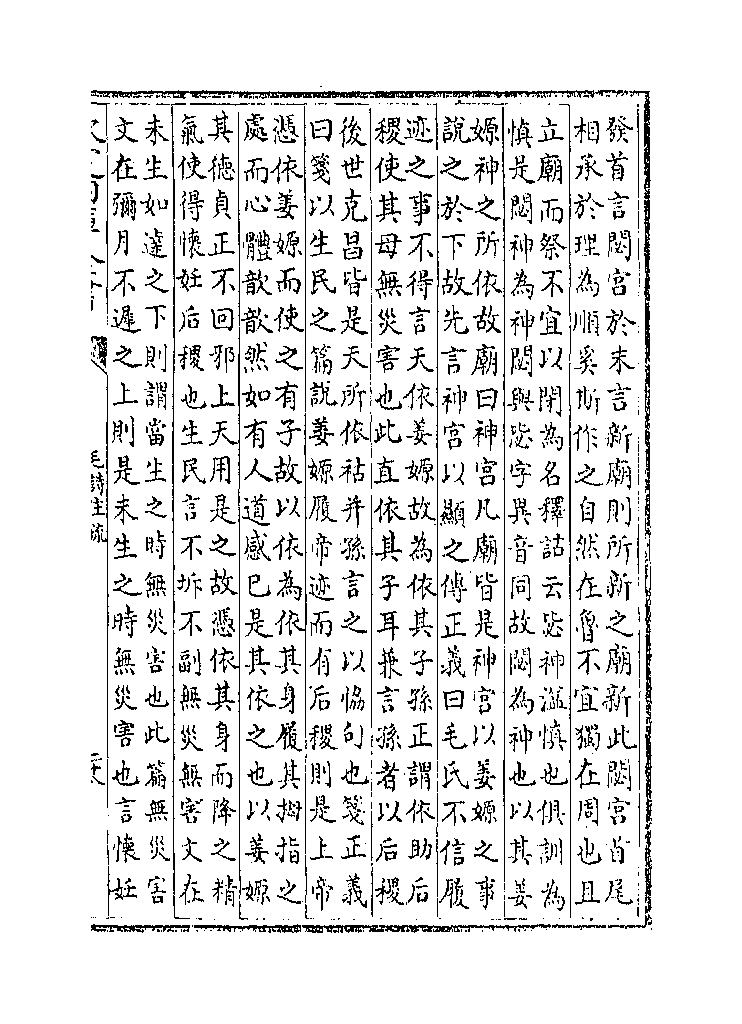 發首言閟宮於末言新廟則所新之廟新此閟宮首尾
相承於理為順奚斯作之自然在魯不宜獨在周也且
立廟而祭不宜以閉為名釋詁云毖神溢慎也俱訓為
慎是閟神為神閟與毖字異音同故閟為神也以其姜
嫄神之所依故廟曰神宮凡廟皆是神宮以姜嫄之事
說之於下故先言神宮以顯之傳正義曰毛氏不信履
迹之事不得言天依姜嫄故為依其子孫正謂依助后
稷使其母無災害也此直依其子耳兼言孫者以后稷
後世克昌皆是天所依祐并孫言之以恊句也箋正義
曰箋以生民之篇說姜嫄履帝迹而有后稷則是上帝
憑依姜嫄而使之有子故以依為依其身履其拇指之
處而心體歆歆然如有人道感已是其依之也以姜嫄
其德貞正不回邪上天用是之故憑依其身而降之精
氣使得懷妊后稷也生民言不坼不副無災無害文在
未生如達之下則謂當生之時無災害也此篇無災害
文在彌月不遲之上則是未生之時無災害也言懷妊
毛詩注疏